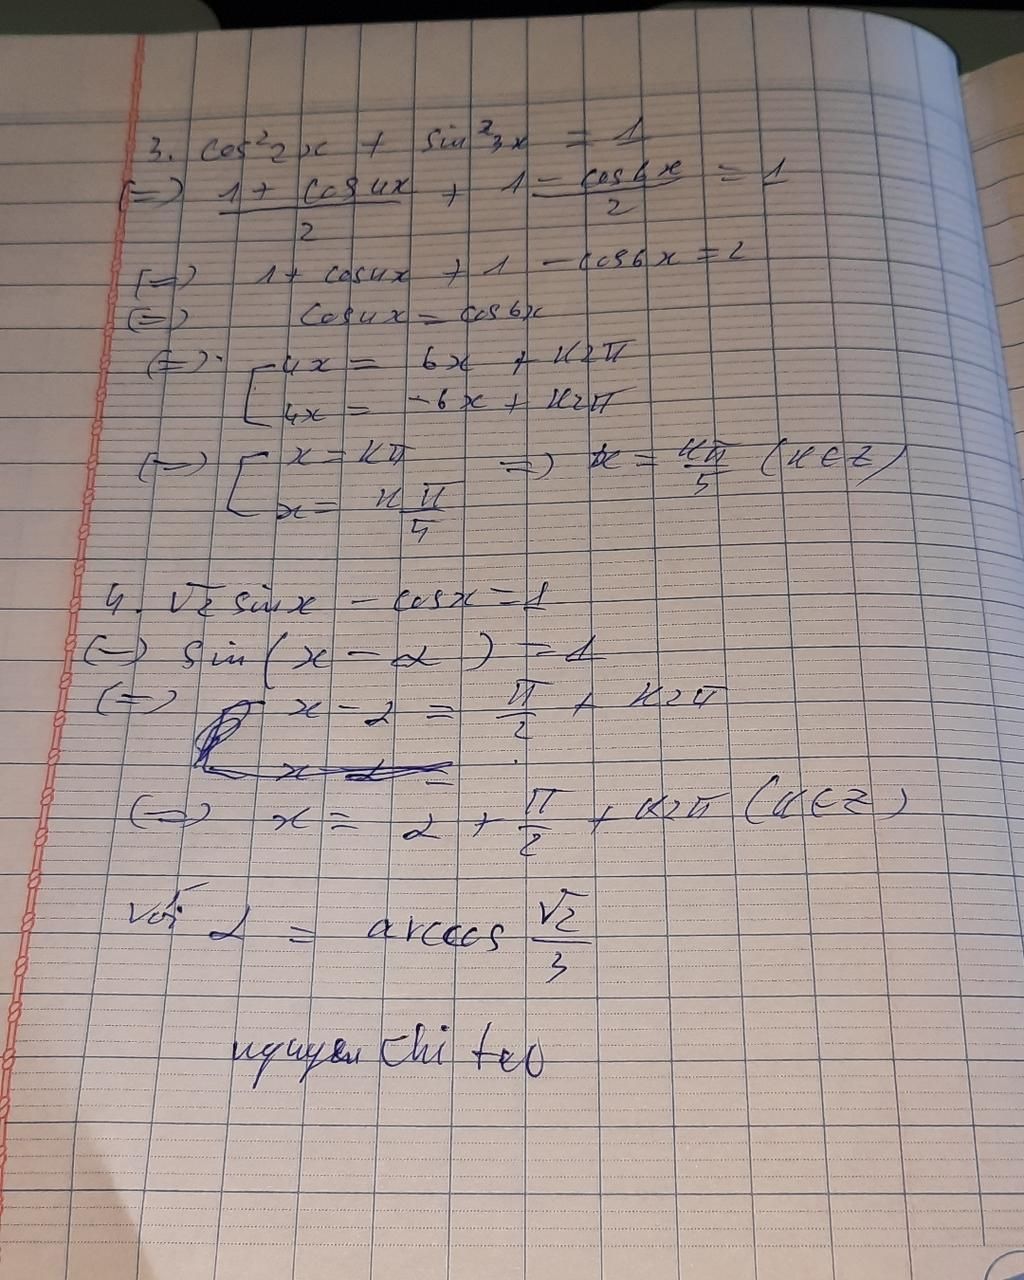 3. cos²2x + sin²3x = 1
(=) (1 + cos4x)/2 + (1 - cos6x)/2 = 1
(=) 1 + cos4x + 1 - cos6x = 2
(=) cos4x = cos6x
(=) [ 4x = 6x + K2π
4x = -6x + K2π
(=) [ x = Kπ => x = Kπ/5 (K∈Z)
x = Kπ/5
4. √2 sinx - cosx = 1
(=) sin(x - α) = 1
(=) x - α = π/2 + K2π
(=) x = α + π/2 + K2π (K∈Z)
Với α = arccos √2/3
nguyen chi teo